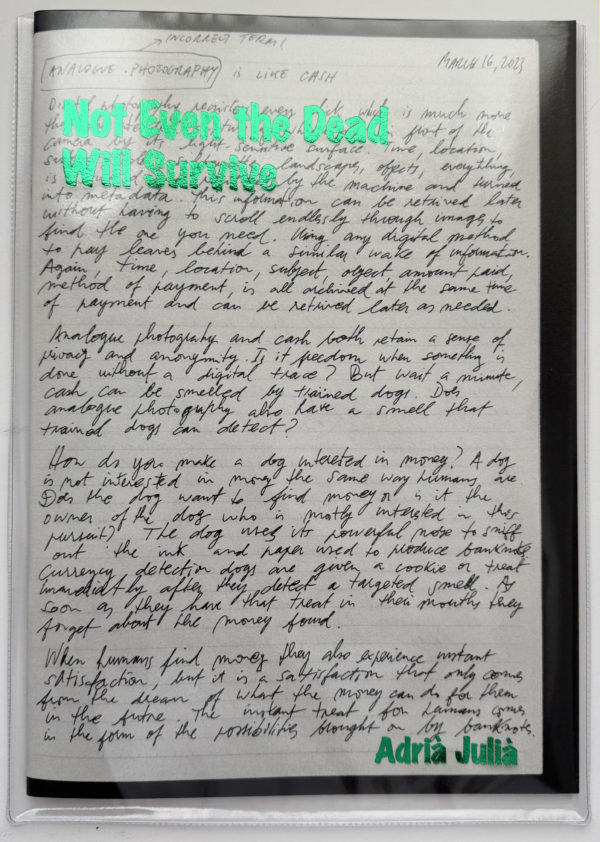 INCORRECT TERM!
MARCH 16, 2023
ANALOGUE PHOTOGRAPHY IS LIKE CASH
Not Even the Dead
Will Survive
Digital photography registers every which is much more
in front of the
camera by its light-sensitive surface. Time, location,
landscapes, objects, everything,
is by the machine and turned
into metadata. This information can be retrived later
without having to scroll endlessly through images to
find the one you need. Using any digital method
to pay leaves behind a similar wake of information.
Again, time, location, subject, object, amount paid,
method of payment, is all archived at the same time
of payment and can be retrived later as needed.
Analogue photography and cash both retain a sense of
privacy and anonymity. Is it freedom when something is
done without a digital trace? But wait a minute,
cash can be smelled by trained dogs. Does
analogue photography also have a smell that
trained dogs can detect?
How do you make a dog interested in money? A dog
is not interested in money the same way humans are.
Does the dog want to find money or is it the
owner of the dog who is mostly interested in this
pursuit? The dog uses its powerful nose to sniff
out the ink and paper used to produce banknotes.
Currency detection dogs are given a cookie or treat
immediatly after they detect a targeted smell. As
soon as they have that treat in their mouths they
forget about the money found.
When humans find money they also experience instant
satisfaction, but it is a satisfaction that only comes
from the dream of what the money can do for them
in the future. The instant treat for humans comes
in the form of the possibilities brought on by banknotes.
Adrià Julià